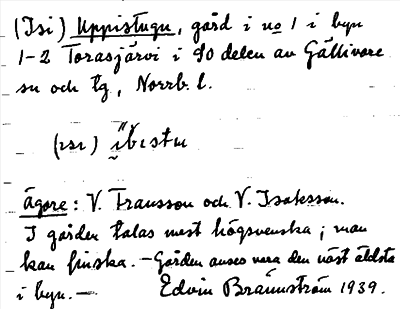 (Isi) Uppistugu, gård i no 1 i byn
1-2 Torasjärvi i SO delen av Gällivare
sn och tg, Norrb. l.
Ägare: V. Fransson och V. Isaksson.
I gården talas mest högsvenska; man
kan finska. - Gården anses vara den näst äldsta
i byn. - Edvin Brännström 1939.